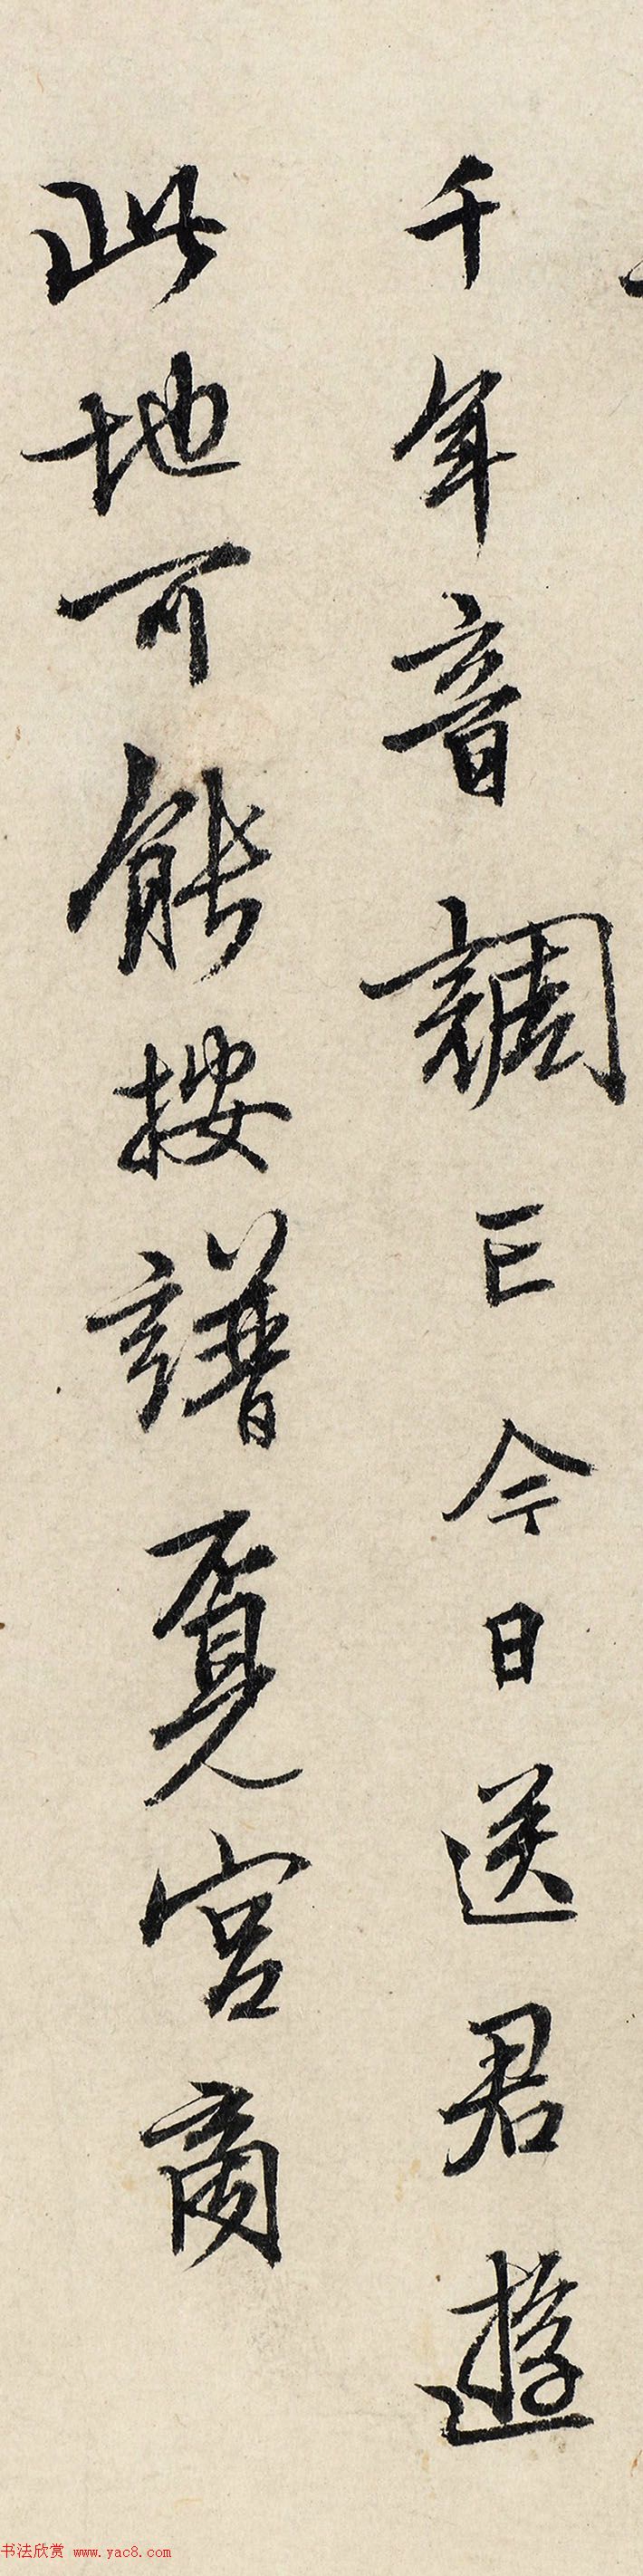 千年音調亡今日送君遊
此地可能按譜覓宮商
书法欣赏 www.yac8.com